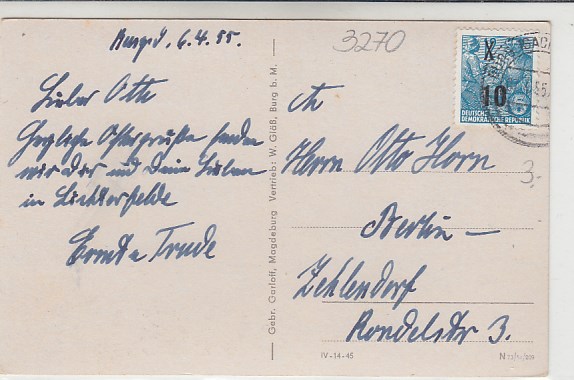 6.4.55.
3270
Lieber Otto
Herzliche Ostergrüße senden
wir Dir und Deinen Lieben
in Lichterfelde
Ernst u Trude
Gebr. Garloff, Magdeburg Vertrieb: W. Glöß, Burg b. M.
10
DEUTSCHE
DEMOKRATISCHE REPUBLIK
An
Herrn Otto Horn
Berlin –
Zehlendorf
Rondelstr 3.
3.-
IV-14-45